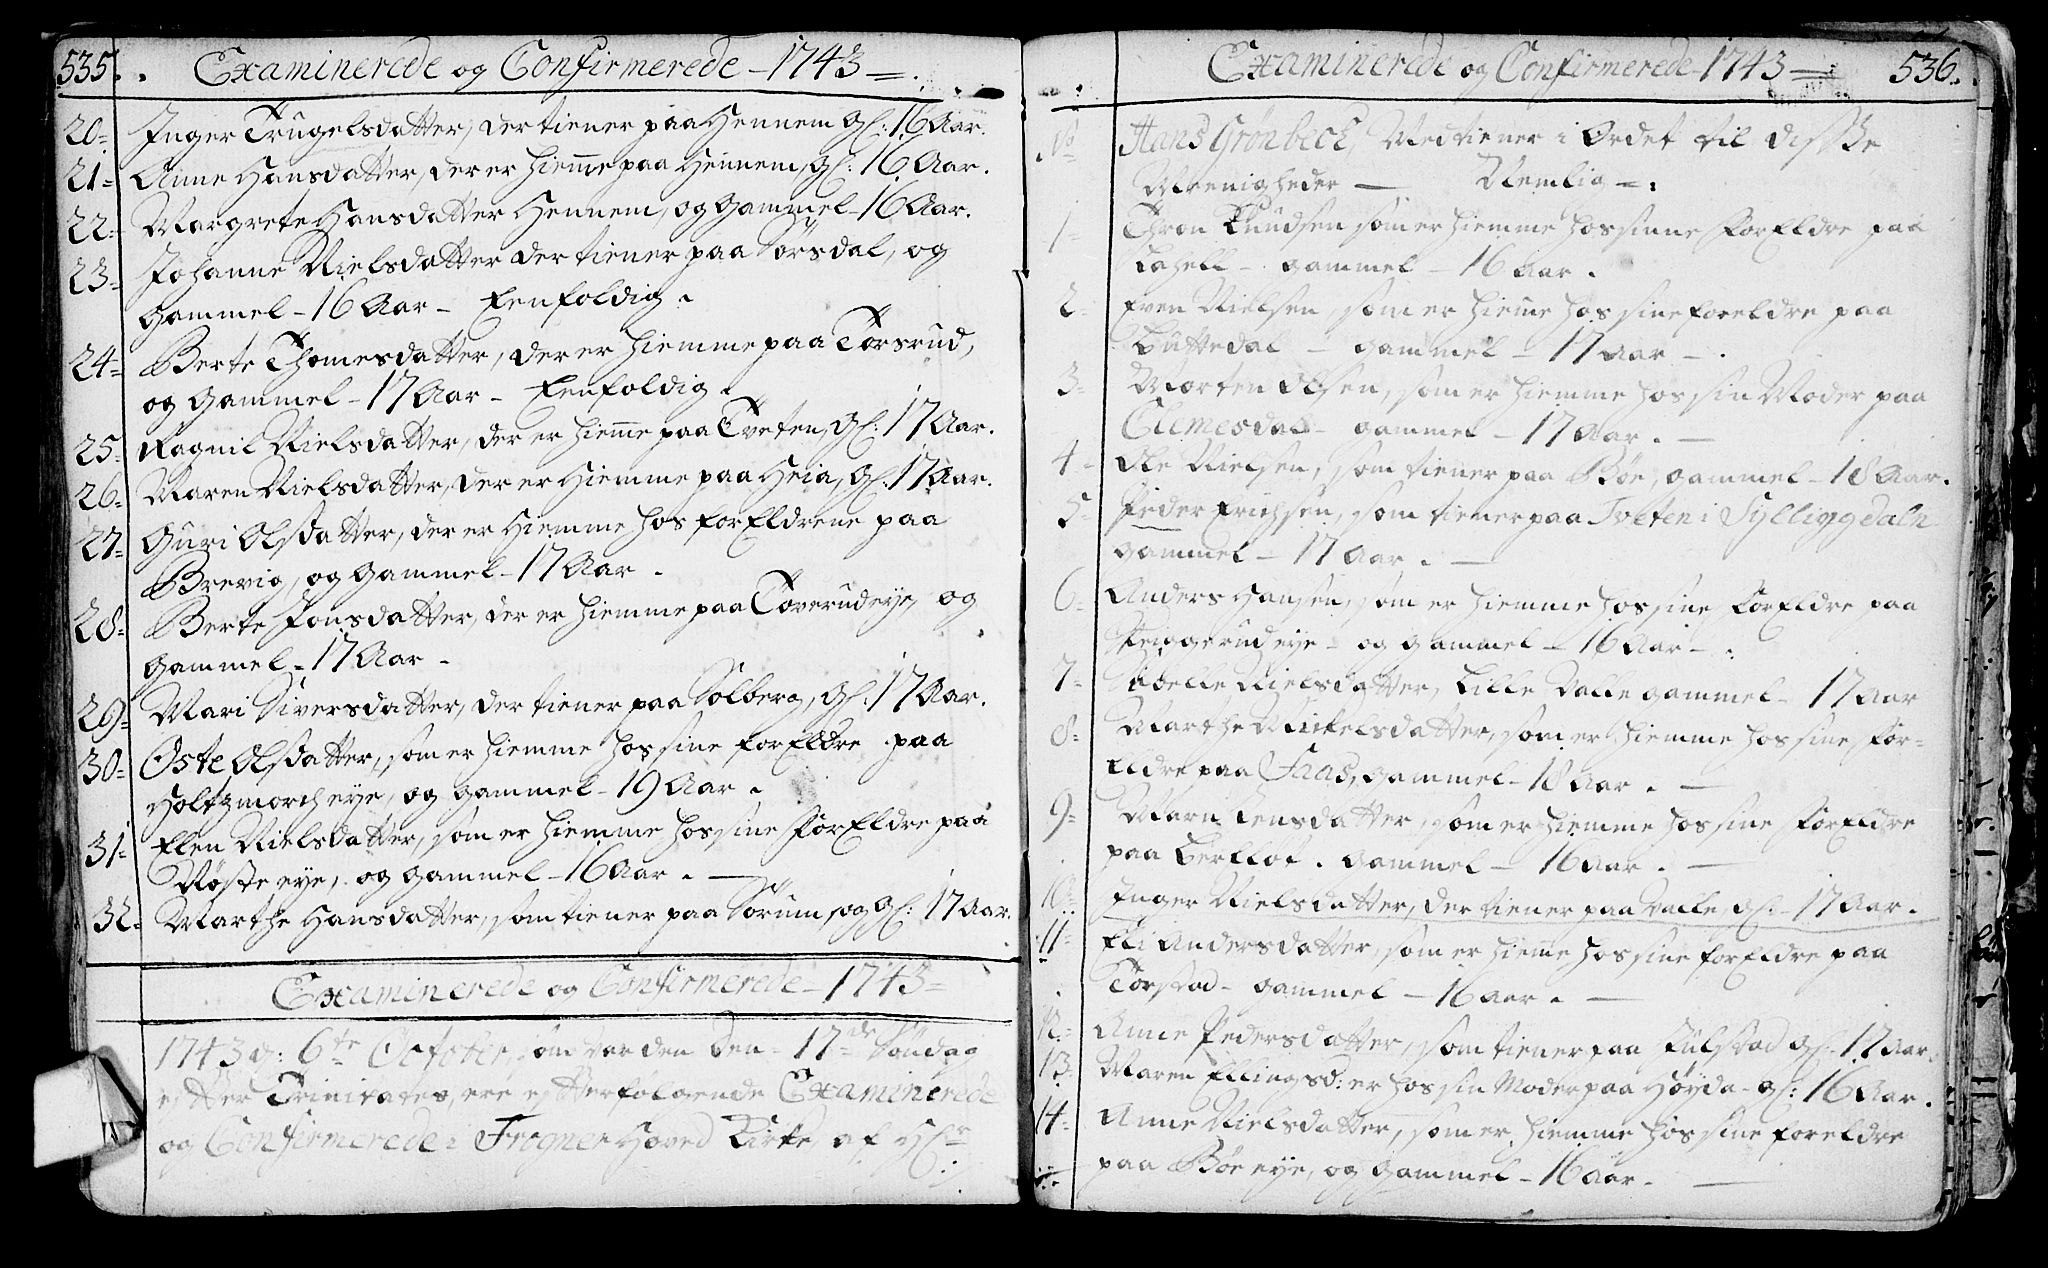 535. Examinerede og Confirmerede – 1743 –
20 – Inger Trugelsdatter, der tiener paa Hennem, gl: 16 Aar.
21 – Anne Hansdatter, der er hiemme paa Hennem, gl: 16 Aar.
22 – Margrete Hansdatter Hennem, og gammel – 16 Aar.
23 – Johanne Nielsdatter der tiener paa Sørsdal, og
gammel – 16 Aar – Eenfoldig.
24 – Berte Thomesdatter, der er hiemme paa Torsrud,
og gammel – 17 Aar – Eenfoldig.
25 – Ragnil Nielsdatter, der er hiemme paa Tveten, gl: 17 Aar.
26 – Maren Nielsdatter, der er hiemme paa Heia, gl: 17 Aar.
27 – Guri Olsdatter, der er hiemme hos forEldrene paa
Brevig, og gammel – 17 Aar.
28 – Berte Jonsdatter, der er hiemme paa Toverudeye, og
gammel – 17 Aar –
29 – Mari Siversdatter, der tiener paa Solberg, gl: 17 Aar.
30 – Oste Olsdatter, som er hiemme hos sine forEldre paa
Holtzmarch eye, og gammel – 19 Aar.
31 – Elen Nielsdatter, som er hiemme hos sine forEldre paa
Nøste eye, og gammel – 16 Aar. –
32 – Marthe Hansdatter, som tiener paa Sørum, og gl: 17 Aar.
Examinerede og Confirmerede – 1743 –
1743 d: 6te October, som var den 17de Søndag
efter Trinitates, ere efterfølgende Examinerede
og Confirmerede i Frogner Hoved Kirke, af Hr
Examinerede og Confirmerede – 1743 – 536.
No Hans Grønbeck, Medtiener i Ordet til disse
Meenigheder – Nemlig –:
1 – Thron Knudsen som er hiemme hos sinne forEldre paa
Lahell – gammel – 16 Aar.
2 – Even Nielsen, som er hieme hos sine foreldre paa
Luttedal – gammel – 17 Aar –.
3 – Morten Olsen, som er hiemme hos sin Moder paa
Clemesdal – gammel – 17 Aar. –
4 – Ole Nielsen, som tiener paa Bøe, gammel – 18 Aar.
5 – Peder Erichsen, som tiener paa Tveten i Sylliggdaln
gammel – 17 Aar. –
6 – Anders Hansen, som er hiemme hos sine forEldre paa
eye – og gammel – 16 Aar –.
7 – Sibelle Nielsdatter, Lille Valle gammel – 17 Aar
8 – Marthe Mickelsdatter, som er hiemme hos sine for-
Eldre paa Faas, gammel – 18 Aar. –
9 – Marn Jensdatter, som er hiemme hos sine forEldre
paa Berflot. gammel – 16 Aar. –
10 – Inger Nielsdatter, der tiener paa Valle, gl: – 17 Aar.
11 – Eli Andersdatter, som er hieme hos sine forEldre paa
Torstad – gammel – 16 Aar. –
12 – Anne Pedersdatter, som tiener paa Julstad gl: 17 Aar.
13 – Maren Ellingsd: er hos sin Moder paa Høyda – gl: 16 Aar.
14 – Anne Nielsdatter, som er hiemme hos sine foreldre
paa Bøe eye, og gammel – 16 Aar. –